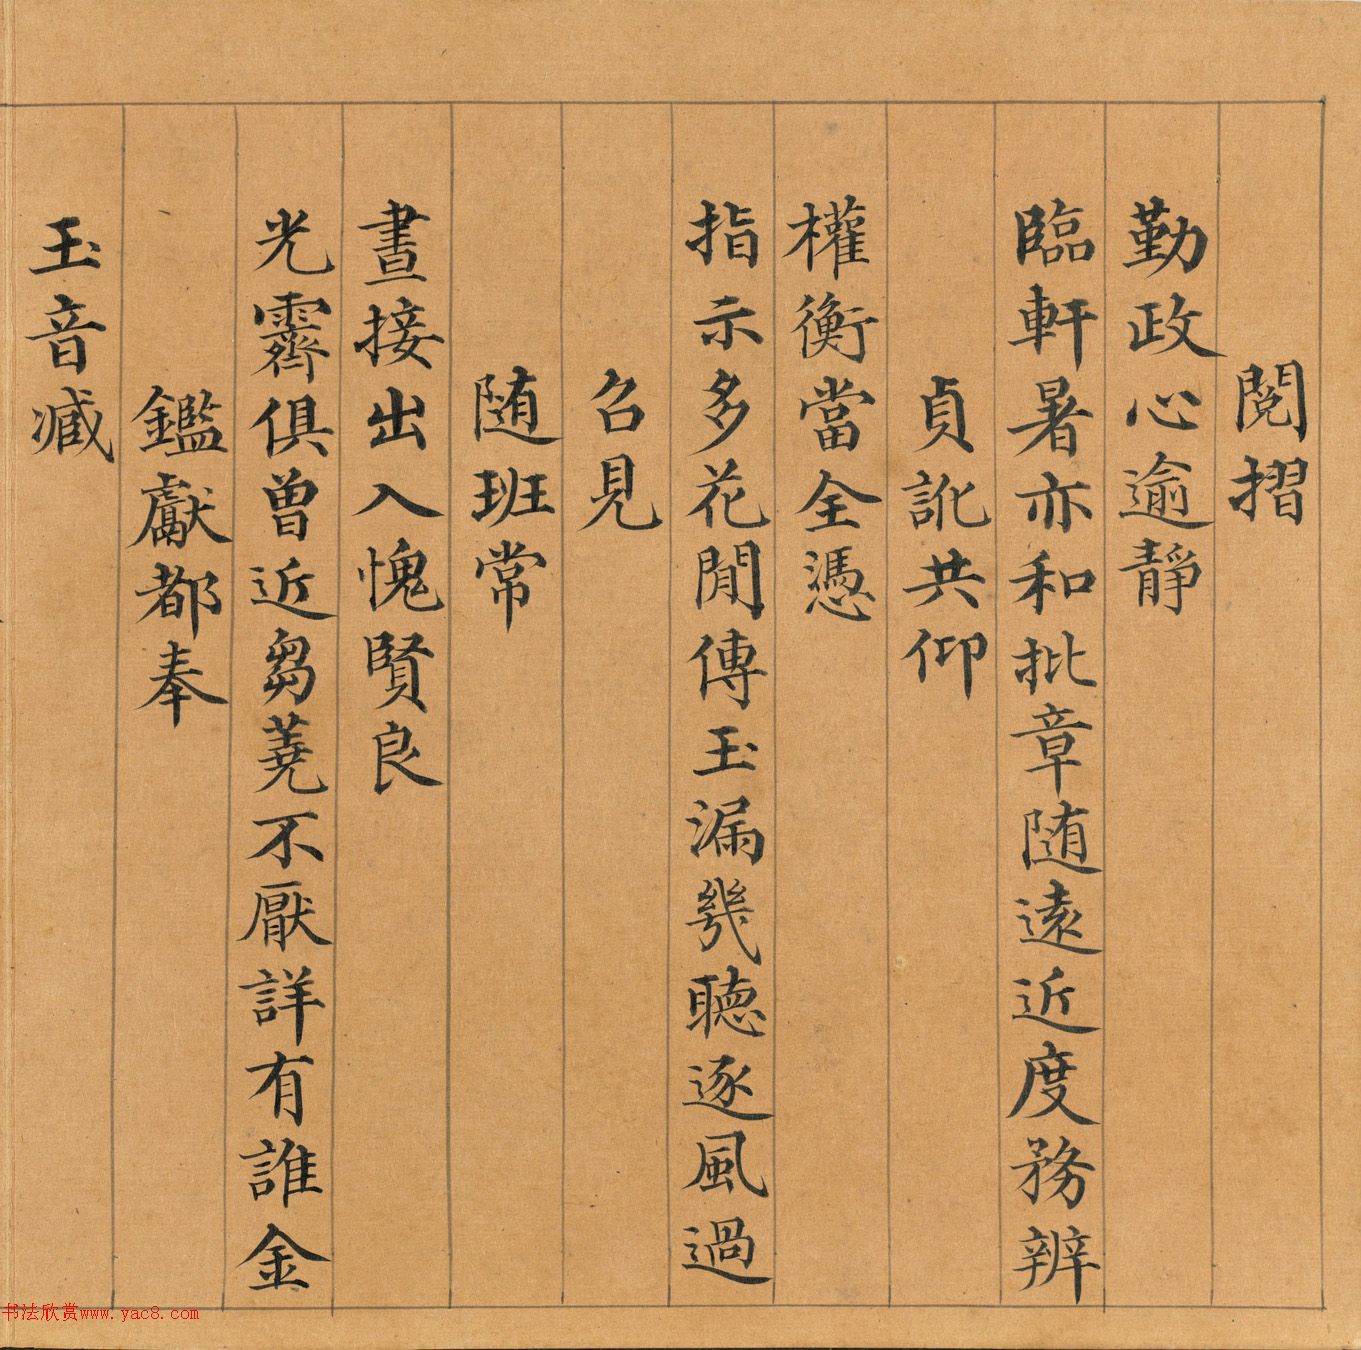 閱摺
勤政心逾靜
臨軒暑亦和批章随遠近度務辨
貞訛共仰
權衡當全憑
指示多花閒傳玉漏幾聽逐風過
召見
随班常
晝接出入愧賢良
光霽俱曾近芻蕘不厭詳有誰金
鑑獻都奉
玉音臧
书法欣赏www.yac8.com